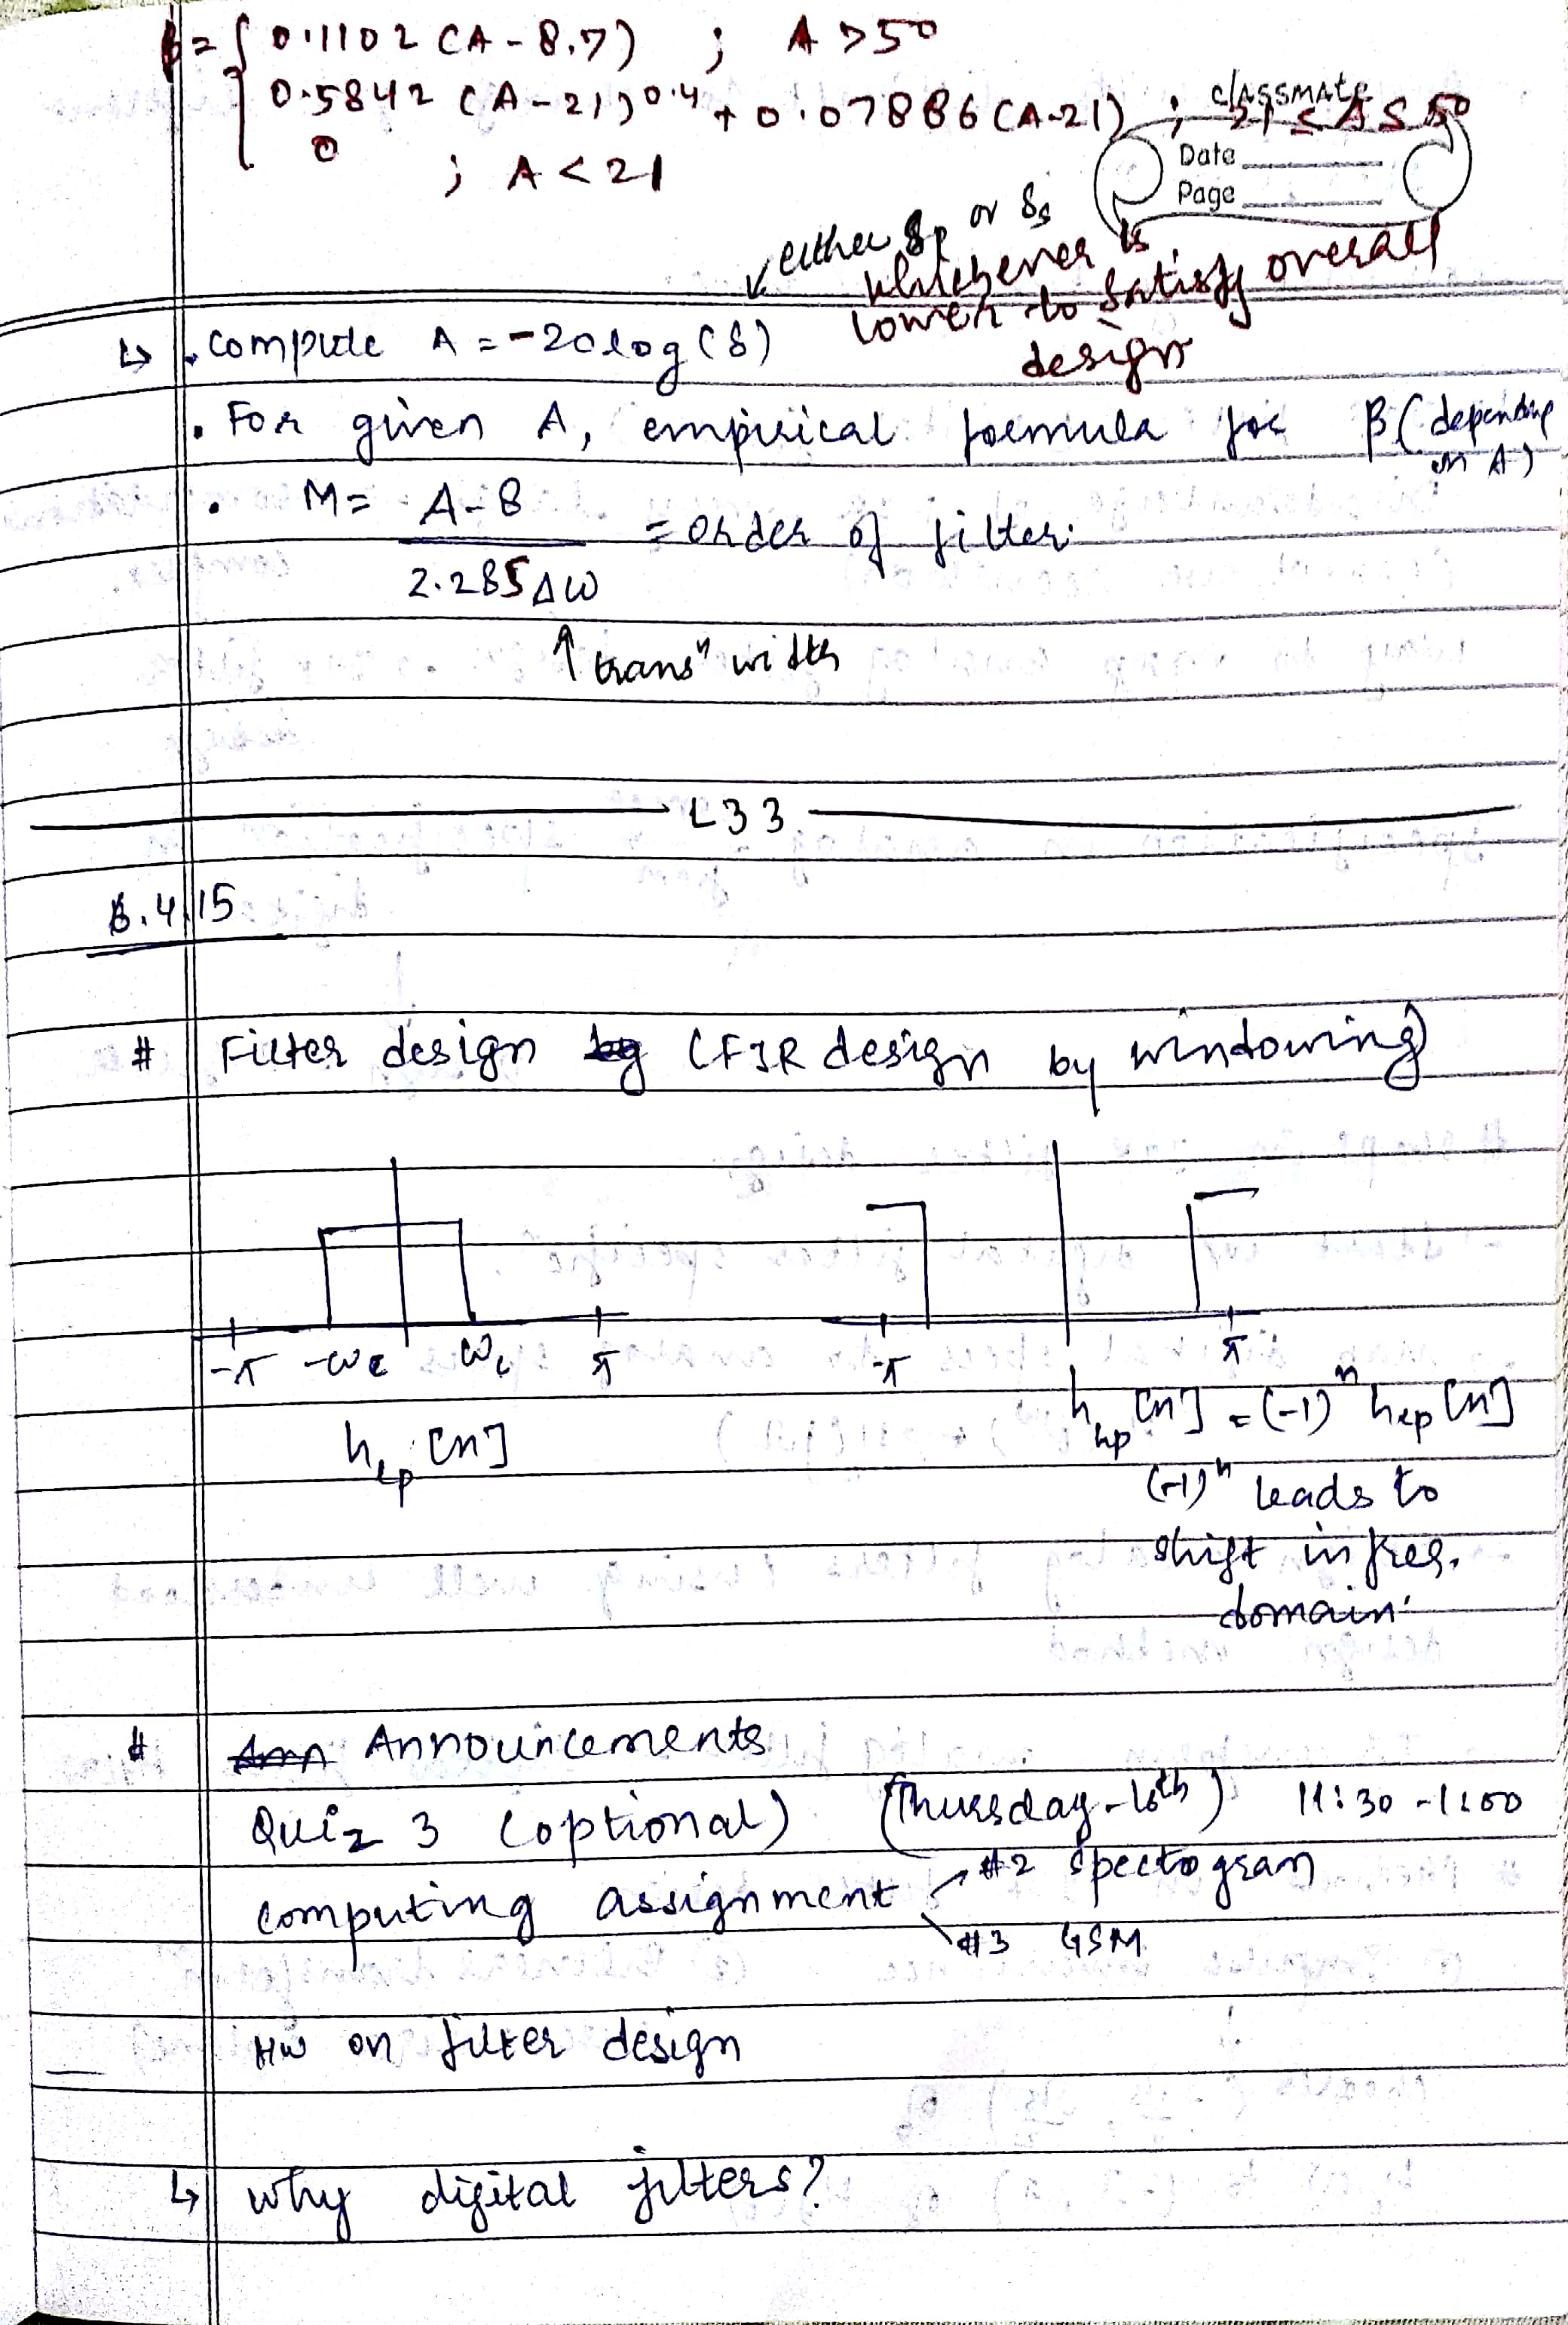 β = { 0.1102 (A - 8.7) ; A > 50
0.5842 (A - 21)^0.4 + 0.07886 (A-21) ; 21 ≤ A ≤ 50
0 ; A < 21
classmate
Date
Page
either δp or δs
whichever is
lower to satisfy overall
design
↳ . compute A = -20log(δ)
. For given A, empirical formula for β (depending
on A)
. M = A-8 / 2.285Δω = order of filter.
↑ transⁿ width
L33
8.4.15
# Filter design by (FIR design by windowing)
-π -ωc ωc π
-π π
h_lp [n]
h_hp [n] = (-1)^n h_lp [n]
(-1)^n leads to
shift in freq.
domain.
# Ann Announcements
Quiz 3 (optional) (Thursday-16th) 11:30 - 1:00
computing assignment #2 spectogram
#3 GSM
HW on filter design
↳ why digital filters?